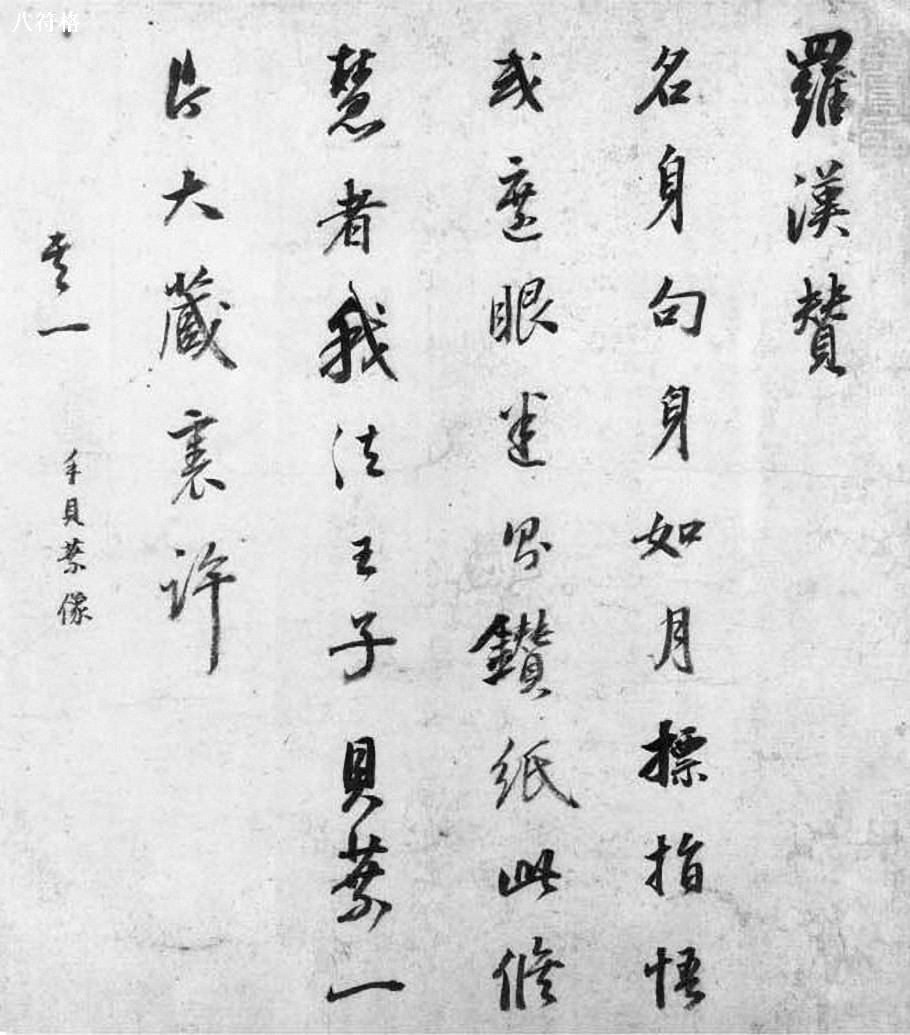 八符格
羅漢贊
名身句身如月標指悟
或遮眼迷鑽紙此修
慧者我法王子貝葉一
片大藏裏許
一
手貝葉像